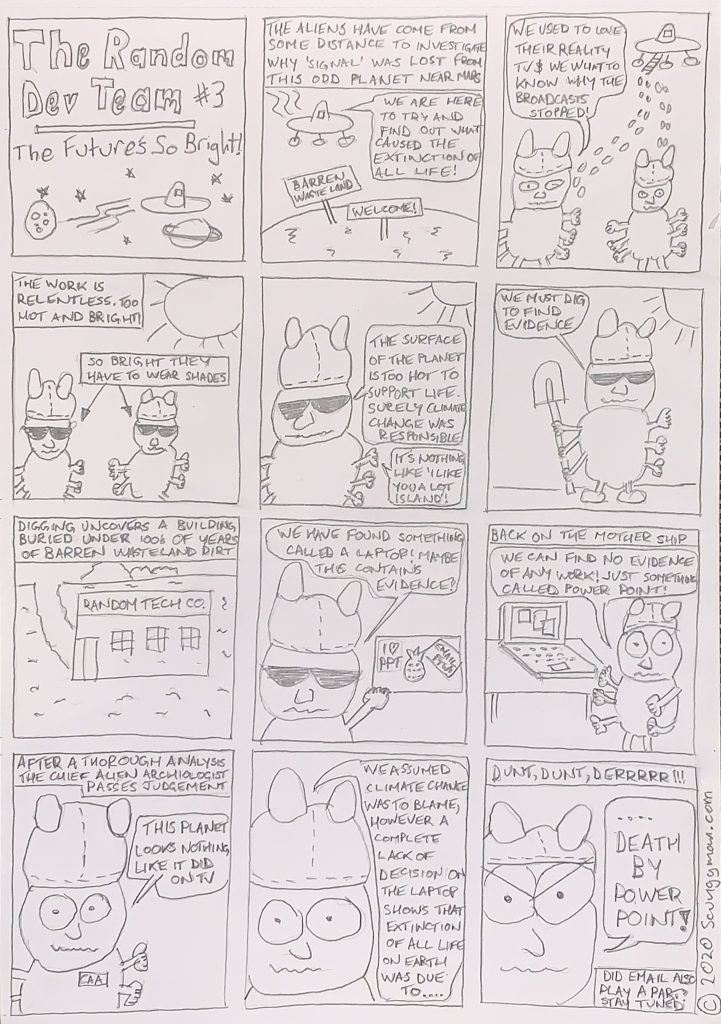 The Random
Dev Team #3
The Future's So Bright!
THE ALIENS HAVE COME FROM
SOME DISTANCE TO INVESTIGATE
WHY 'SIGNAL' WAS LOST FROM
THIS ODD PLANET NEAR MARS
WE ARE HERE
TO TRY AND
FIND OUT WHAT
CAUSED THE
EXTINCTION OF
ALL LIFE!
BARREN
WASTE LAND
WELCOME!
WE USED TO LOVE
THEIR REALITY
TV$ WE WHAT TO
KNOW WHY THE
BROADCASTS
STOPPED!
THE WORK IS
RELENTLESS. TOO
HOT AND BRIGHT!
SO BRIGHT THEY
HAVE TO WEAR SHADES
THE SURFACE
OF THE PLANET
IS TOO HOT TO
SUPPORT LIFE.
SURELY CLIMATE
CHANGE WAS
RESPONSIBLE
IT'S NOTHING
LIKE 'I LIKE
YOU A LOT
ISLAND'!
WE MUST DIG
TO FIND
EVIDENCE
DIGGING UNCOVERS A BUILDING,
BURIED UNDER 100s OF YEARS
OF BARREN WASTELAND DIRT
RANDOM TECH CO.
WE HAVE FOUND SOMETHING
CALLED A LAPTOP! MAYBE
THIS CONTAINS
EVIDENCE?
I ♡
PPT
EMAIL
FTW!
BACK ON THE MOTHER SHIP
WE CAN FIND NO EVIDENCE
OF ANY WORK! JUST SOMETHING
CALLED POWER POINT!
AFTER A THOROUGH ANALYSIS
THE CHIEF ALIEN ARCHIOLOGIST
PASSES JUDGEMENT
THIS PLANET
LOOKS NOTHING
LIKE IT DID
ON TV
CAA
WE ASSUMED
CLIMATE CHANGE
WAS TO BLAME,
HOWEVER A
COMPLETE
LACK OF
DECISION ON
THE LAPTOP
SHOWS THAT
EXTINCTION
OF ALL LIFE
ON EARTH
WAS DUE
TO....
DUNT, DUNT, DERRRRR!!!
.....
DEATH
BY
POWER
POINT!
DID EMAIL ALSO
PLAY A PART?
STAY TUNED
© 2020 Scruggyman.com